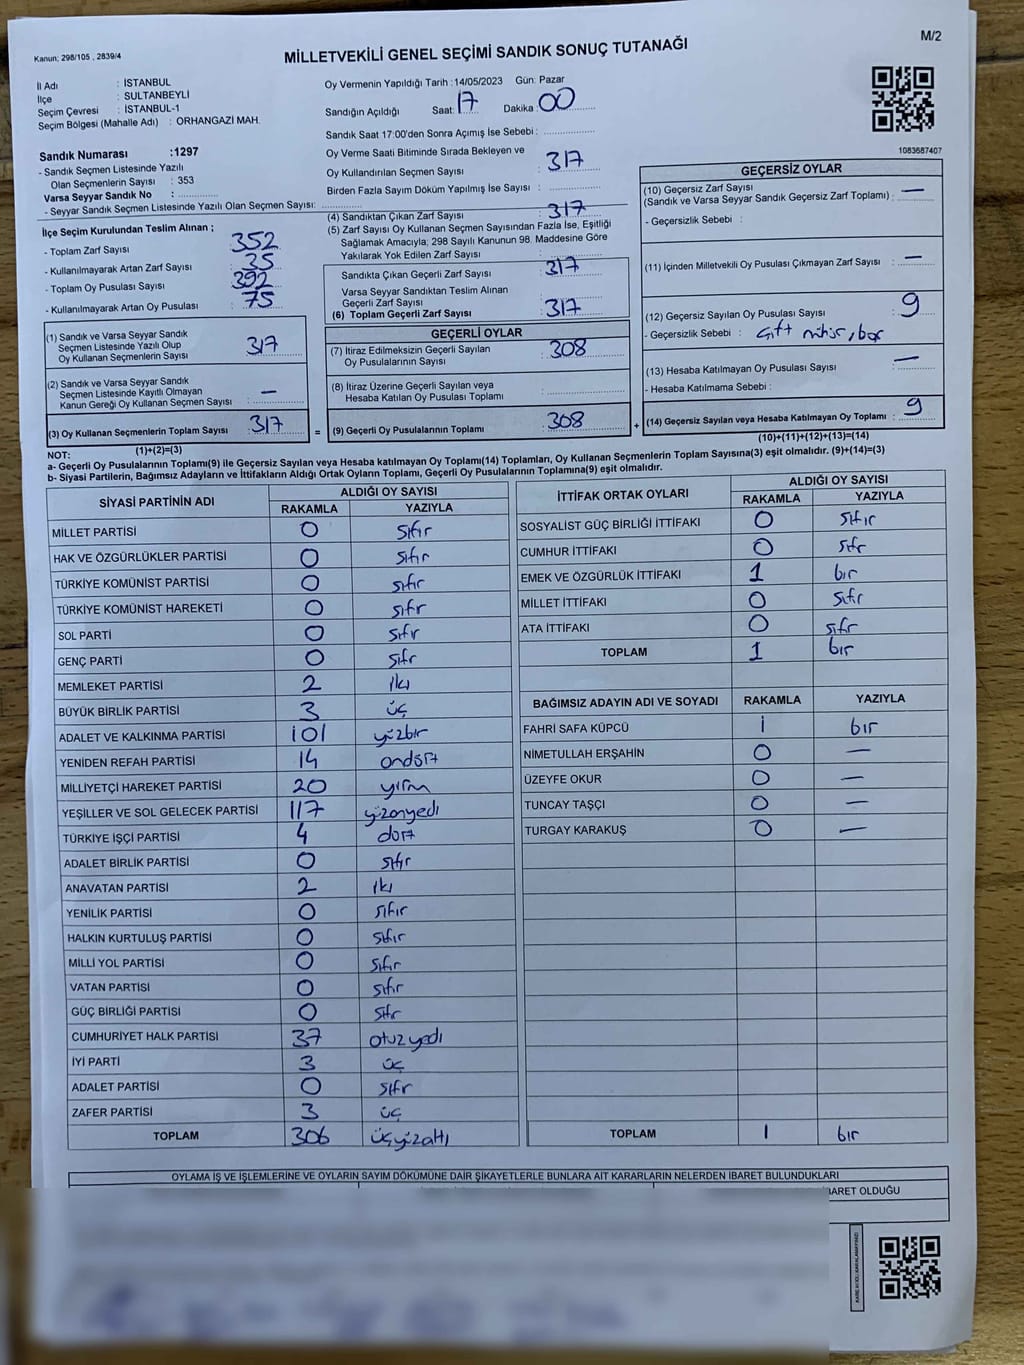 Kanun; 298/105 , 2839/4
MİLLETVEKİLİ GENEL SEÇİMİ SANDIK SONUÇ TUTANAĞI
M/2
İl Adı : İSTANBUL
İlçe : SULTANBEYLİ
Seçim Çevresi : İSTANBUL-1
Seçim Bölgesi (Mahalle Adı) : ORHANGAZİ MAH.
Sandık Numarası :1297
- Sandık Seçmen Listesinde Yazılı
Olan Seçmenlerin Sayısı : 353
Varsa Seyyar Sandık No :
- Seyyar Sandık Seçmen Listesinde Yazılı Olan Seçmen Sayısı:
İlçe Seçim Kurulundan Teslim Alınan ;
- Toplam Zarf Sayısı 352
- Kullanılmayarak Artan Zarf Sayısı 35
- Toplam Oy Pusulası Sayısı 392
- Kullanılmayarak Artan Oy Pusulası : 75
(1) Sandık ve Varsa Seyyar Sandık
Seçmen Listesinde Yazılı Olup
Oy Kullanan Seçmenlerin Sayısı 317
(2) Sandık ve Varsa Seyyar Sandık
Seçmen Listesinde Kayıtlı Olmayan
Kanun Gereği Oy Kullanan Seçmen Sayısı : —
(3) Oy Kullanan Seçmenlerin Toplam Sayısı : 317
(1)+(2)=(3)
Oy Vermenin Yapıldığı Tarih : 14/05/2023 Gün: Pazar
Sandığın Açıldığı Saat: 17 Dakika : 00
Sandık Saat 17:00'den Sonra Açımış İse Sebebi :
Oy Verme Saati Bitiminde Sırada Bekleyen ve
Oy Kullandırılan Seçmen Sayısı : 317
Birden Fazla Sayım Döküm Yapılmış İse Sayısı :
(4) Sandıktan Çıkan Zarf Sayısı : 317
(5) Zarf Sayısı Oy Kullanan Seçmen Sayısından Fazla İse, Eşitliği
Sağlamak Amacıyla; 298 Sayılı Kanunun 98. Maddesine Göre
Yakılarak Yok Edilen Zarf Sayısı :
Sandıkta Çıkan Geçerli Zarf Sayısı : 317
Varsa Seyyar Sandıktan Teslim Alınan
Geçerli Zarf Sayısı :
(6) Toplam Geçerli Zarf Sayısı : 317
GEÇERLİ OYLAR
(7) İtiraz Edilmeksizin Geçerli Sayılan
Oy Pusulalarının Sayısı : 308
(8) İtiraz Üzerine Geçerli Sayılan veya
Hesaba Katılan Oy Pusulası Toplamı :
= (9) Geçerli Oy Pusulalarının Toplamı : 308 +
1083687407
GEÇERSİZ OYLAR
(10) Geçersiz Zarf Sayısı
(Sandık ve Varsa Seyyar Sandık Geçersiz Zarf Toplamı) : —
- Geçersizlik Sebebi :
(11) İçinden Milletvekili Oy Pusulası Çıkmayan Zarf Sayısı : —
(12) Geçersiz Sayılan Oy Pusulası Sayısı : 9
- Geçersizlik Sebebi : çift mühür, boş
(13) Hesaba Katılmayan Oy Pusulası Sayısı : —
- Hesaba Katılmama Sebebi :
(14) Geçersiz Sayılan veya Hesaba Katılmayan Oy Toplamı : 9
(10)+(11)+(12)+(13)=(14)
NOT:
a- Geçerli Oy Pusulalarının Toplamı(9) ile Geçersiz Sayılan veya Hesaba katılmayan Oy Toplamı(14) Toplamları, Oy Kullanan Seçmenlerin Toplam Sayısına(3) eşit olmalıdır. (9)+(14)=(3)
b- Siyasi Partilerin, Bağımsız Adayların ve İttifakların Aldığı Ortak Oyların Toplamı, Geçerli Oy Pusulalarının Toplamına(9) eşit olmalıdır.
SİYASİ PARTİNİN ADI ALDIĞI OY SAYISI
RAKAMLA YAZIYLA
MİLLET PARTİSİ 0 sıfır
HAK VE ÖZGÜRLÜKLER PARTİSİ 0 sıfır
TÜRKİYE KOMÜNİST PARTİSİ 0 sıfır
TÜRKİYE KOMÜNİST HAREKETİ 0 sıfr
SOL PARTİ 0 sıfır
GENÇ PARTİ 0 sıfr
MEMLEKET PARTİSİ 2 iki
BÜYÜK BİRLİK PARTİSİ 3 üç
ADALET VE KALKINMA PARTİSİ 101 yüzbir
YENİDEN REFAH PARTİSİ 14 ondört
MİLLİYETÇİ HAREKET PARTİSİ 20 yirmi
YEŞİLLER VE SOL GELECEK PARTİSİ 117 yüzonyedi
TÜRKİYE İŞÇİ PARTİSİ 4 dört
ADALET BİRLİK PARTİSİ 0 sıfır
ANAVATAN PARTİSİ 2 iki
YENİLİK PARTİSİ 0 sıfır
HALKIN KURTULUŞ PARTİSİ 0 sıfır
MİLLİ YOL PARTİSİ 0 sıfır
VATAN PARTİSİ 0 sıfır
GÜÇ BİRLİĞİ PARTİSİ 0 sıfır
CUMHURİYET HALK PARTİSİ 37 otuz yedi
İYİ PARTİ 3 üç
ADALET PARTİSİ 0 sıfır
ZAFER PARTİSİ 3 üç
TOPLAM 306 üçyüzaltı
İTTİFAK ORTAK OYLARI ALDIĞI OY SAYISI
RAKAMLA YAZIYLA
SOSYALİST GÜÇ BİRLİĞİ İTTİFAKI 0 sıfır
CUMHUR İTTİFAKI 0 sıfr
EMEK VE ÖZGÜRLÜK İTTİFAKI 1 bir
MİLLET İTTİFAKI 0 sıfır
ATA İTTİFAKI 0 sıfr
TOPLAM 1 bir
BAĞIMSIZ ADAYIN ADI VE SOYADI RAKAMLA YAZIYLA
FAHRİ SAFA KÜPCÜ 1 bir
NİMETULLAH ERŞAHİN 0 —
ÜZEYFE OKUR 0 —
TUNCAY TAŞÇI 0 —
TURGAY KARAKUŞ 0 —
TOPLAM 1 bir
OYLAMA İŞ VE İŞLEMLERİNE VE OYLARIN SAYIM DÖKÜMÜNE DAİR ŞİKAYETLERLE BUNLARA AİT KARARLARIN NELERDEN İBARET BULUNDUKLARI
İBARET OLDUĞU